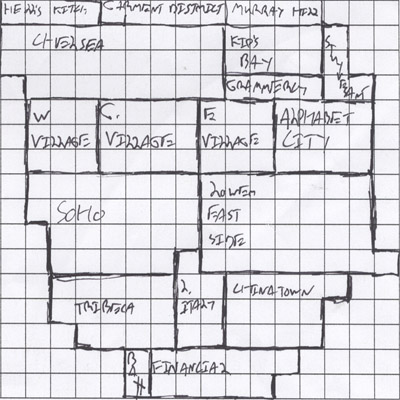 HELL'S KITCH
GARMENT DISTRICT
MURRAY HILL
CHELSEA
KIP'S
BAY
STUYVESANT
GRAMMERCY
W
VILLAGE
C.
VILLAGE
E
VILLAGE
ALPHABET
CITY
SOHO
LOWER
EAST
SIDE
TRIBECA
L.
ITALY
CHINATOWN
FINANCIAL